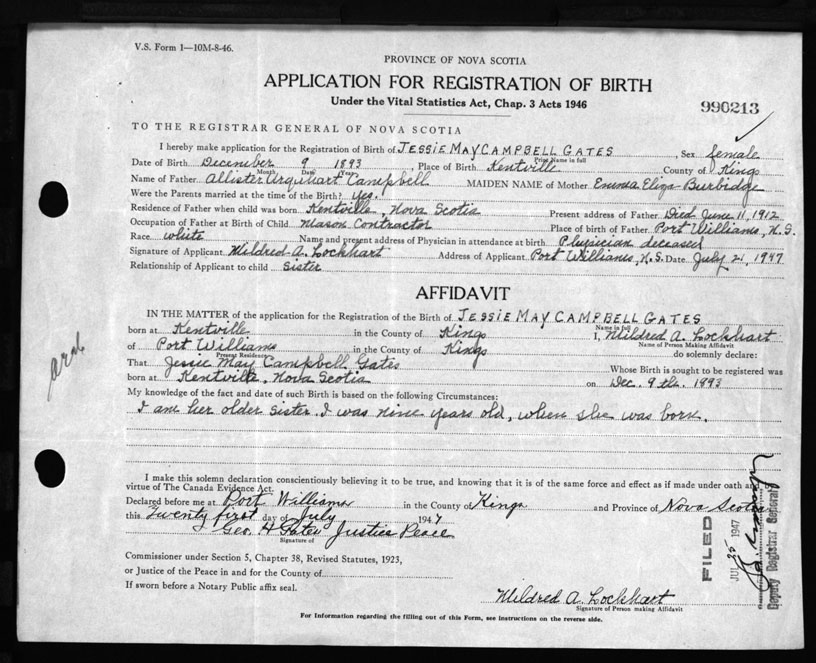 V.S. Form 1—10M-8-46.
PROVINCE OF NOVA SCOTIA
APPLICATION FOR REGISTRATION OF BIRTH
Under the Vital Statistics Act, Chap. 3 Acts 1946
990213
TO THE REGISTRAR GENERAL OF NOVA SCOTIA
I hereby make application for the Registration of Birth of JESSIE MAY CAMPBELL GATES, Sex female
Print Name in full
Date of Birth December 9 1893, Place of Birth Kentville County of Kings
Month Date Year
Name of Father Allister Urquhart Campbell MAIDEN NAME of Mother Emma Eliza Burbidge
Were the Parents married at the time of Birth? yes.
Residence of Father when child was born Kentville, Nova Scotia Present address of Father Died June 11, 1912
Occupation of Father at Birth of Child Mason Contractor Place of birth of Father Port Williams, N.S.
Race white Name and present address of Physician in attendance at birth Physician deceased
Signature of Applicant Mildred A. Lockhart Address of Applicant Port Williams, N.S. Date July 21, 1947
Relationship of Applicant to child sister
AFFIDAVIT
IN THE MATTER of the application for the Registration of the Birth of JESSIE MAY CAMPBELL GATES
Name in full
born at Kentville in the County of Kings I, Mildred A. Lockhart
Name of Person Making Affidavit
of Port Williams in the County of Kings do solemnly declare:
Present Residence
That Jessie May Campbell Gates Whose Birth is sought to be registered was
born at Kentville, Nova Scotia on Dec. 9th. 1893
My knowledge of the fact and date of such Birth is based on the following Circumstances:
I am her older sister. I was nine years old, when she was born.
I make this solemn declaration conscientiously believing it to be true, and knowing that it is of the same force and effect as if made under oath and
virtue of The Canada Evidence Act.
Declared before me at Port Williams in the County of Kings and Province of Nova Scotia
this Twenty first day of July 1947
Geo. H Gates Justice Peace
Signature of
Commissioner under Section 5, Chapter 38, Revised Statutes, 1923,
or Justice of the Peace in and for the County of
If sworn before a Notary Public affix seal.
Mildred A. Lockhart
Signature of Person making Affidavit
For Information regarding the filling out of this Form, see instructions on the reverse side.
FILED
JUL 25 1947
Deputy Registrar General